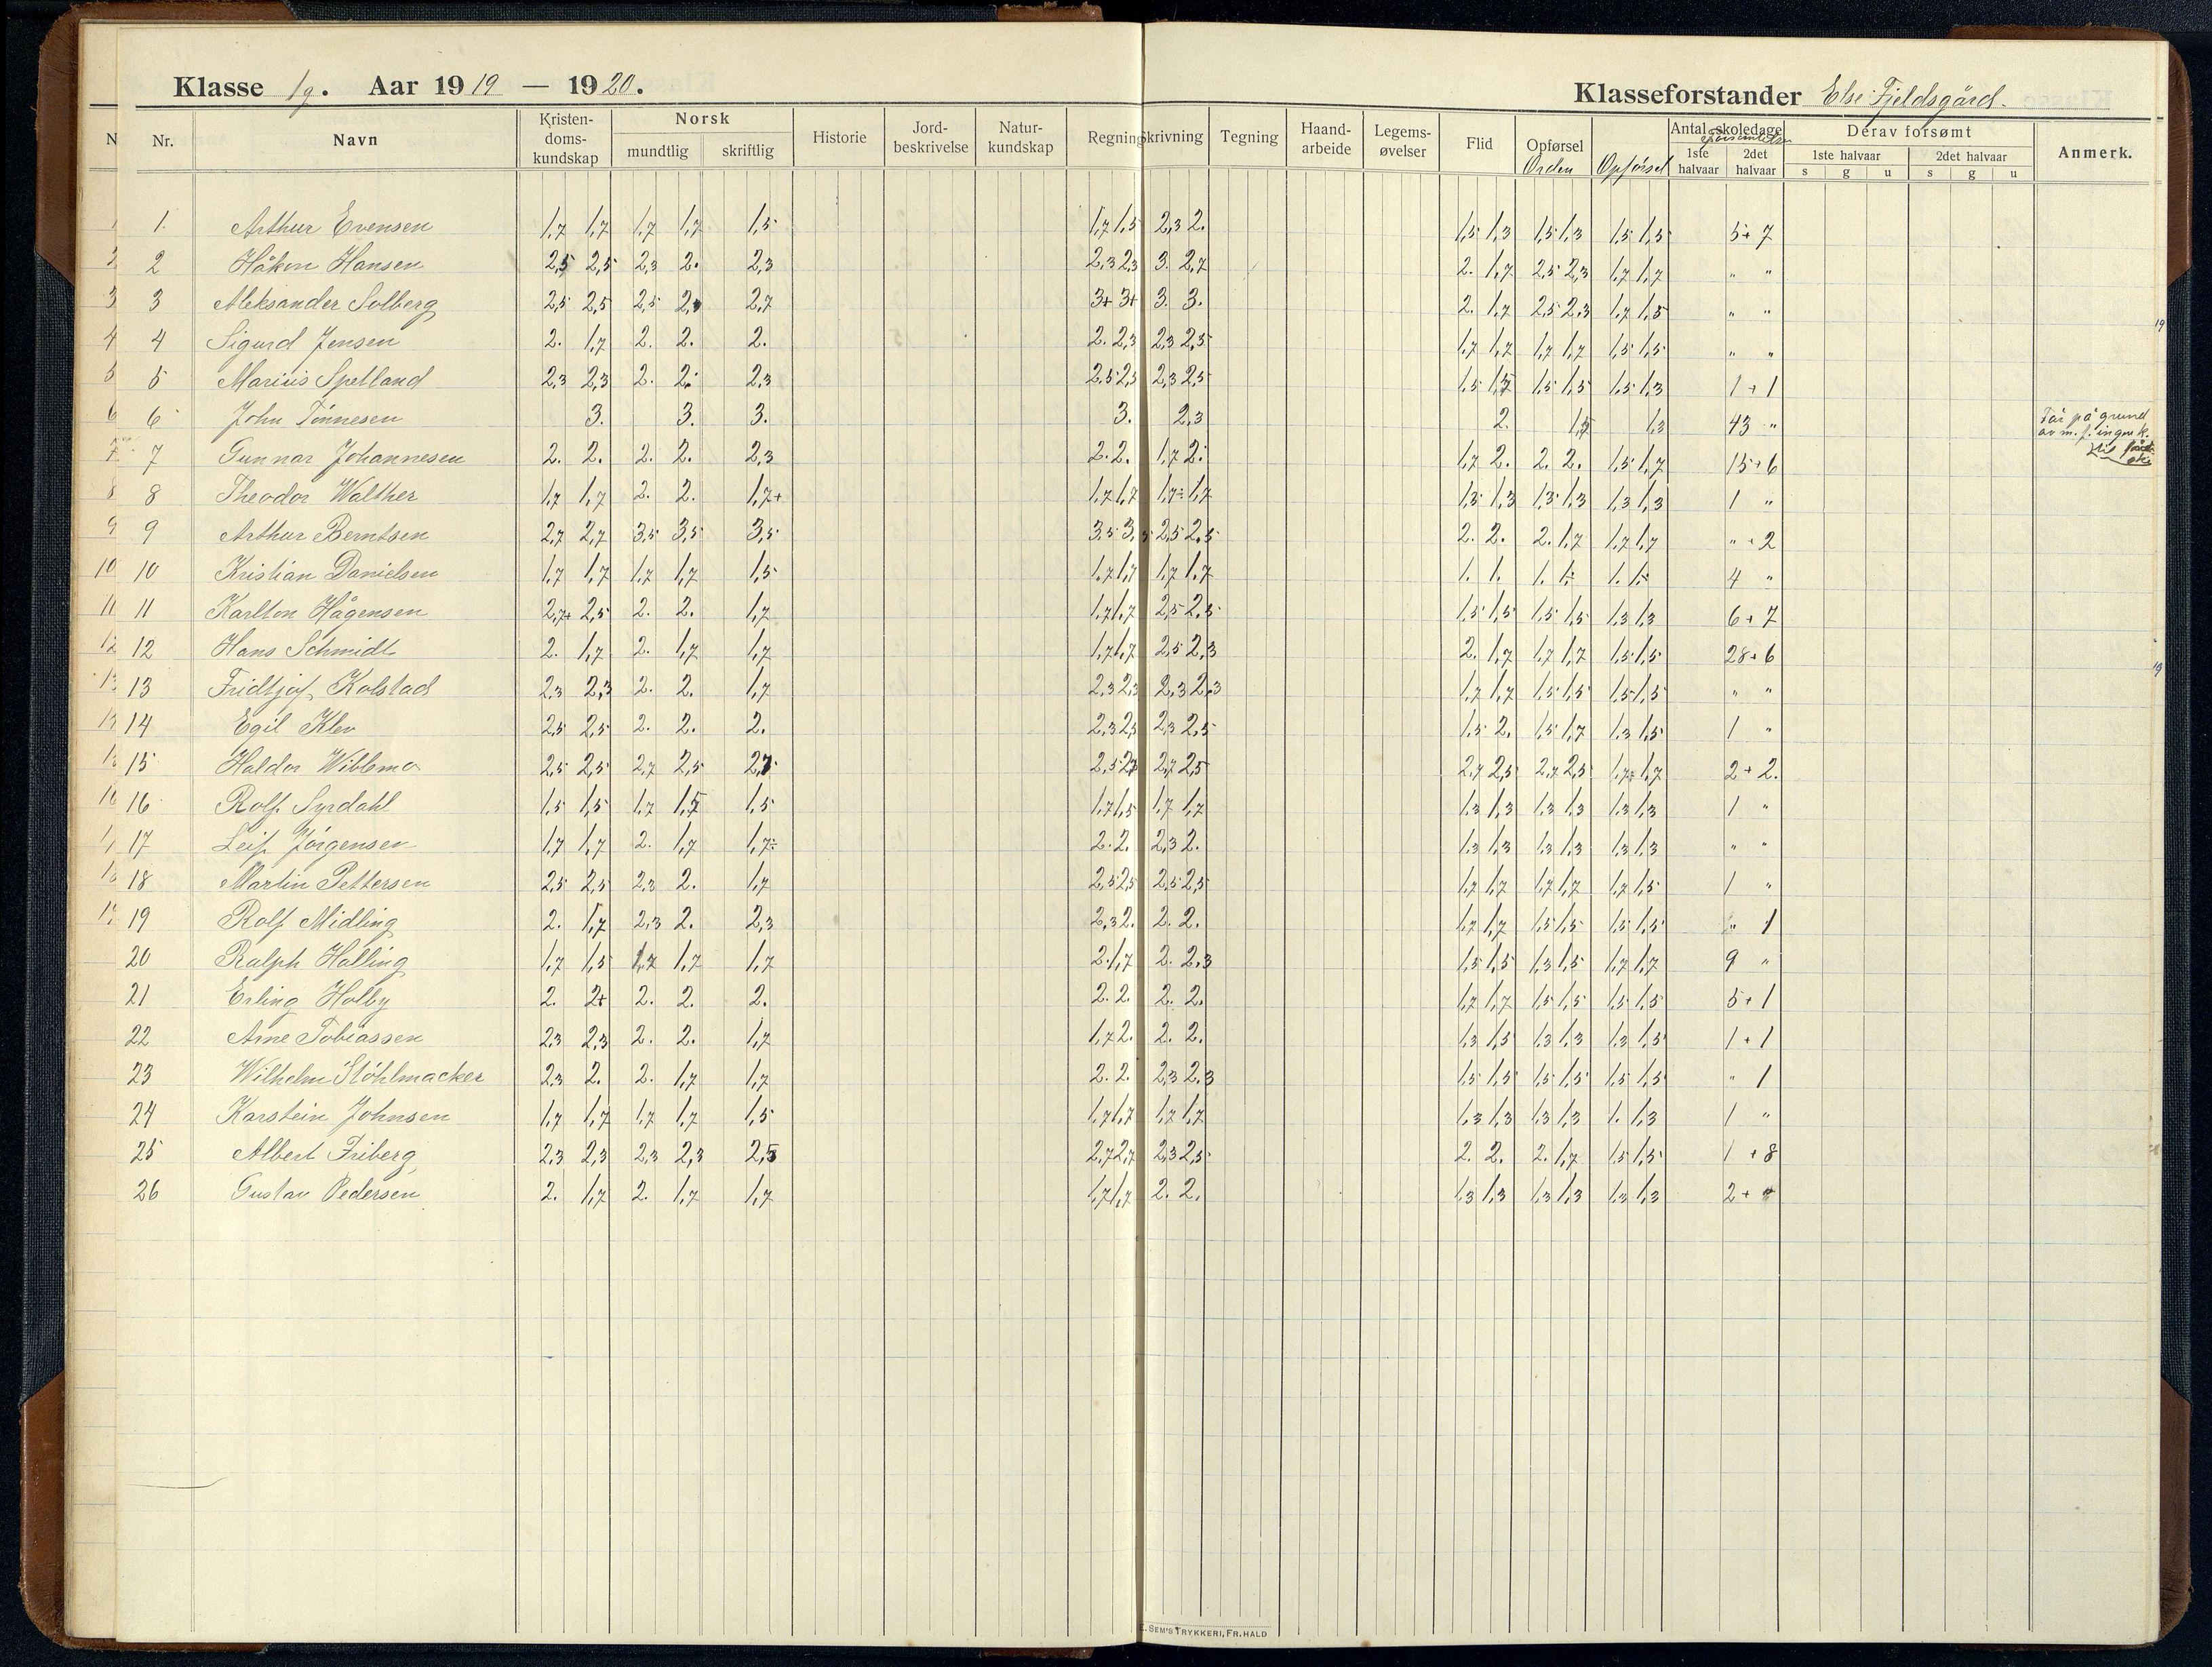 Klasse 1g. Aar 1919 — 1920. Klasseforstander Else Fjeldsgård.
Nr. Navn Kristendoms-kundskap Norsk mundtlig skriftlig Historie Jord-beskrivelse Natur-kundskap Regning Skrivning Tegning Haand-arbeide Legems-øvelser Flid Opførsel Orden Opførsel Antal skoledage Forsømmelser 1ste halvaar 2det halvaar Derav forsømt 1ste halvaar s g u 2det halvaar s g u Anmerk.
1. Arthur Evensen 1,7 1,7 1,7 1,7 1,5 1,7 1,5 2,3 2. 1,5 1,3 1,5 1,3 1,5 1,5 5+ 7
2 Håkon Hansen 2,5 2,5 2,3 2. 2,3 2,3 2,3 3. 2,7 2. 1,7 2,5 2,3 1,7 1,7 " "
3 Aleksander Solberg 2,5 2,5 2,5 2, 2,7 3+ 3+ 3. 3. 2. 1,7 2,5 2,3 1,7 1,5 " "
4 Sigurd Jensen 2. 1,7 2. 2. 2. 2. 2,3 2,3 2,5 1,7 1,7 1,7 1,7 1,5 1,5 " "
5 Marius Spetland 2,3 2,3 2. 2. 2,3 2,5 2,5 2,3 2,5 1,5 1,7 1,5 1,5 1,5 1,3 1 + 1
6 John Tønnesen 3. 3. 3. 3. 2,3 2. 1,5 1,3 43 " Får på grund
av m. f. ingen k.
7 Gunnar Johannesen 2. 2. 2. 2. 2,3 2. 2. 1,7 2. 1,7 2. 2. 2. 1,5 1,7 15+6
8 Theodor Walther 1,7 1,7 2. 2. 1,7+ 1,7 1,7 1,7÷ 1,7 1,3 1,3 1,3 1,3 1,3 1,3 1 "
9 Arthur Berntsen 2,7 2,7 3,5 3,5 3,5 3,5 3,5 2,5 2,5 2. 2. 2. 1,7 1,7 1,7 " + 2
10 Kristian Danielsen 1,7 1,7 1,7 1,7 1,5 1,7 1,7 1,7 1,7 1. 1. 1. 1÷ 1. 1÷ 4 "
11 Karlton Hågensen 2,7+ 2,5 2. 2. 1,7 1,7 1,7 2,5 2,5 1,5 1,5 1,5 1,5 1,3 1,3 6 + 7
12 Hans Schmidt 2. 1,7 2. 1,7 1,7 1,7 1,7 2,5 2,3 2. 1,7 1,7 1,7 1,5 1,5 28+6
13 Fridtjof Kolstad 2,3 2,3 2. 2. 1,7 2,3 2,3 2,3 2,3 1,7 1,7 1,5 1,5 1,5 1,5 " "
14 Egil Klev 2,5 2,5 2. 2. 2. 2,3 2,5 2,3 2,5 1,5 2. 1,5 1,7 1,3 1,5 1 "
15 Haldor Wiblemo 2,5 2,5 2,7 2,5 2,7 2,5 2,7 2,7 2,5 2,7 2,5 2,7 2,5 1,7+ 1,7 2 + 2.
16 Rolf Syrdahl 1,5 1,5 1,7 1,5 1,5 1,7 1,5 1,7 1,7 1,3 1,3 1,3 1,3 1,3 1,3 1 "
17 Leif Jørgensen 1,7 1,7 2. 1,7 1,7÷ 2. 2. 2,3 2. 1,3 1,3 1,3 1,3 1,3 1,3 " "
18 Martin Pettersen 2,5 2,5 2,3 2. 1,7 2,5 2,5 2,5 2,5 1,7 1,7 1,7 1,7 1,7 1,5 1 "
19 Rolf Midling 2. 1,7 2,3 2. 2,3 2,3 2. 2. 2. 1,7 1,7 1,5 1,5 1,5 1,5 " 1
20 Ralph Halling 1,7 1,5 1,7 1,7 1,7 2. 1,7 2. 2,3 1,5 1,5 1,3 1,5 1,7 1,7 9 "
21 Erling Holby 2. 2+ 2. 2. 2. 2. 2. 2. 2. 1,7 1,7 1,5 1,5 1,5 1,5 5 + 1
22 Arne Tobiassen 2,3 2,3 2. 2. 1,7 1,7 2. 2. 2. 1,3 1,5 1,3 1,3 1,3 1,5 1 + 1
23 Wilhelm Støhlmacker 2,3 2. 2. 1,7 1,7 2. 2. 2,3 2,3 1,5 1,5 1,5 1,5 1,5 1,5 " 1
24 Karstein Johnsen 1,7 1,7 1,7 1,7 1,5 1,7 1,7 1,7 1,7 1,3 1,3 1,3 1,3 1. 1,3 1 "
25 Albert Friberg 2,3 2,3 2,3 2,3 2,5 2,7 2,7 2,3 2,5 2. 2. 2. 1,7 1,5 1,5 1 + 8
26 Gustav Pedersen 2. 1,7 2. 1,7 1,7 1,7 1,7 2. 2. 1,3 1,3 1,3 1,3 1,3 1,3 2 + "
SEM'S TRYKKERI, FR.HALD